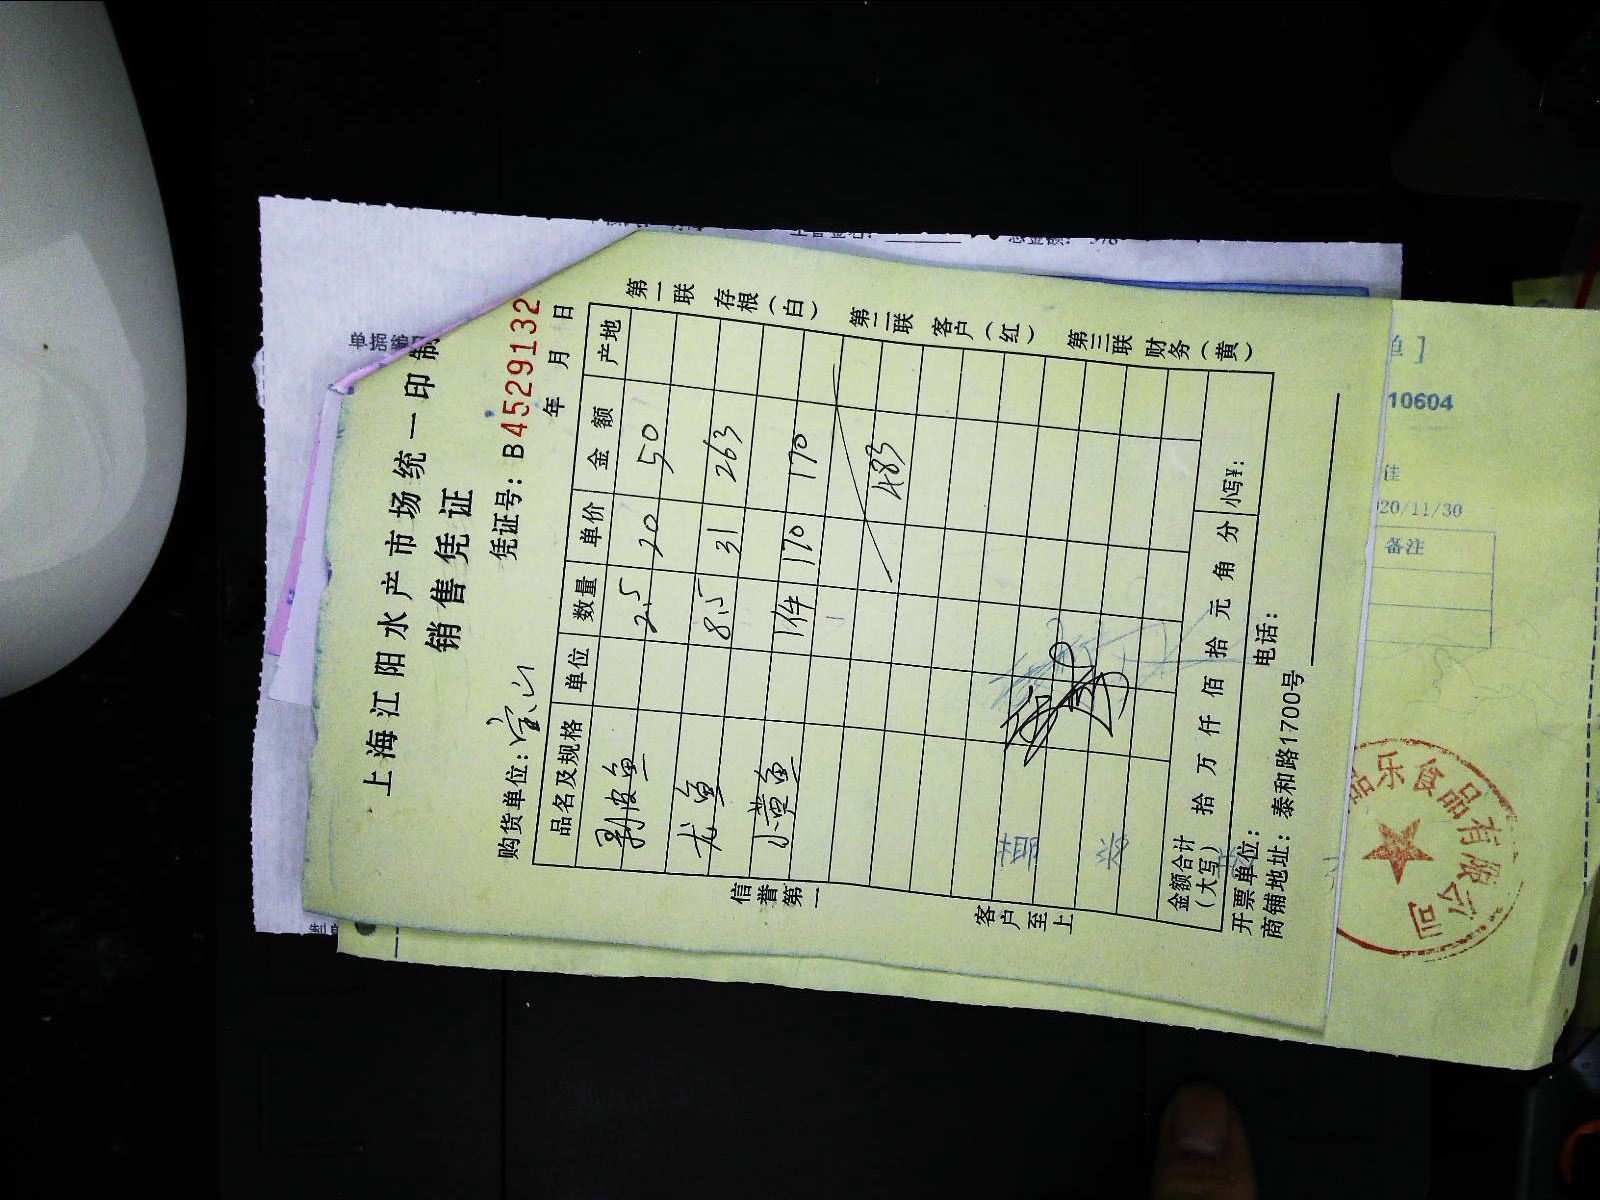 上海江阳水产市场统一印制
销售凭证
凭证号: B4529132
购货单位: 宝山 年 月 日
品名及规格 单位 数量 单价 金额 产地
剥皮鱼 2.5 20 50
龙鱼 8.5 31 263
小黄鱼 1件 170 170
483
金额合计(大写) 拾 万 仟 佰 拾 元 角 分 小写¥:
开票单位: 电话:
商铺地址: 泰和路1700号
信誉第一
客户至上
第一联 存根(白)
第二联 客户(红)
第三联 财务(黄)
总金额: 378
单]
10604
佳
20/11/30
备注
乐食品有限公司